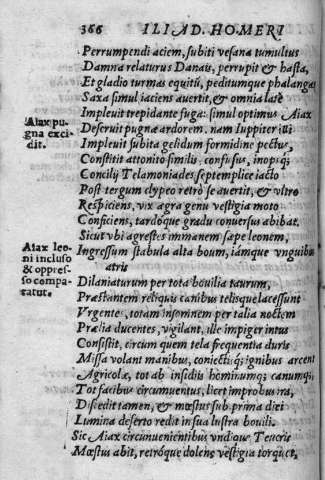 366 ILIAD. HOMERI
Perrumpendi aciem, subiti vesana tumultus
Damna relaturus Danais, perrupit & hasta,
Et gladio turmas equitũ, peditumque phalangas
Saxa simul iaciens auertit, & omnia latè
Impleuit trepidante fuga: simul optimus Aiax
Aiax pu-
gna exci-
dit.
Deseruit pugnæ ardorem. nam Iuppiter illi
Impleuit subita gelidum formidine pectus,
Constitit attonito similis, confusus, inopsq;
Concilij Telamoniades septemplice iacto
Post tergum clypeo retrò se auertit, & vltro
Respiciens, vix ægra genu vestigia moto
Conficiens, tardoque gradu conuersus abibat.
Sicut vbi agrestes immanem sæpe leonem,
Aiax leo-
ni incluso
& oppres-
so compa-
ratur.
Ingressum stabula alta boum, iámque vnguibus
atris
Dilaniaturum per tota bouilia taurum,
Præstantem reliquis canibus telisque lacessunt
Vrgente, totam insomnem per talia noctem
Prælia ducentes, vigilant, ille impiger intus
Consistit, circum quem tela frequentia duris
Missa volant manibus, coniectiq; ignibus arcent
Agricolæ, tot ab insidiis hominumq; canumq;
Tot facibus circumuentus, licet improbus ira,
Discedit tamen, & mœstus sub prima diei
Lumina deserto redit in sua lustra bouili.
Sic Aiax circunuenientibus vndique Teucris
Mœstus abit, retróque dolens vestigia torquet,